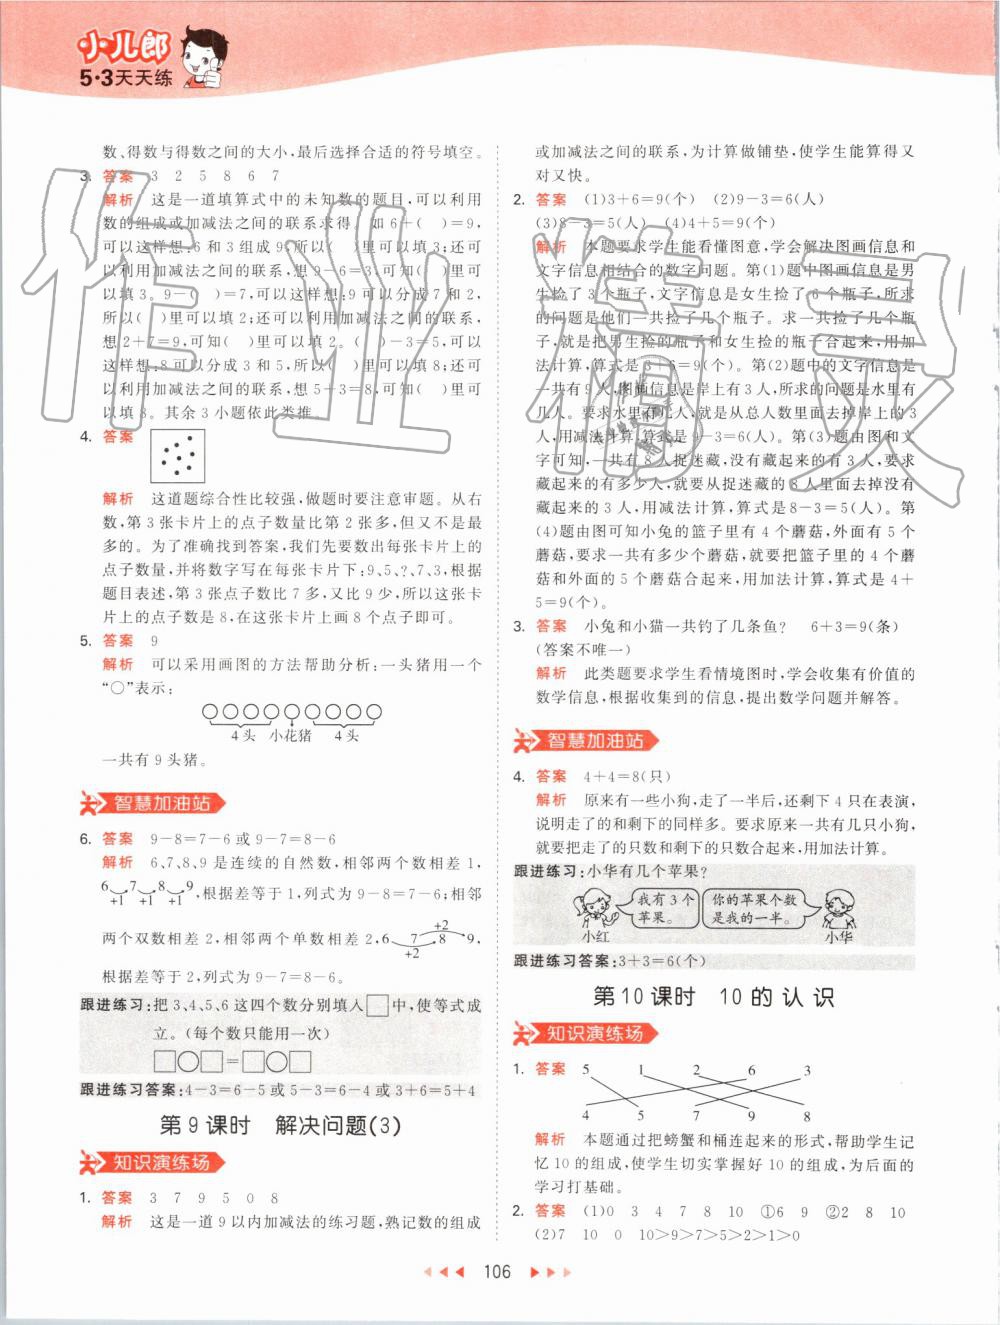 小儿郎
5·3天天练
数、得数与得数之间的大小,最后选择合适的符号填空。
3. 答案 3 2 5 8 6 7
解析 这是一道填算式中的未知数的题目,可以利用
数的组成或加减法之间的联系求得。如6+( )=9,
可以这样想:6和3组成9,所以( )里可以填3;还可
以利用加减法之间的联系,想9-6=3,可知( )里可
以填3。9-( )=7,可以这样想:9可以分成7和2,
所以( )里可以填2;还可以利用加减法之间的联系,
想2+7=9,可知( )里可以填2。( )-3=5,可以
这样想:8可以分成3和5,所以( )里可以填8;还可
以利用加减法之间的联系,想5+3=8,可知( )里可
以填8。其余3小题依此类推。
4. 答案
解析 这道题综合性比较强,做题时要注意审题。从右
数,第3张卡片上的点子数量比第2张多,但又不是最
多的。为了准确找到答案,我们先要数出每张卡片上的
点子数量,并将数字写在每张卡片下:9、5、?、7、3,根据
题目表述,第3张点子数比7多,又比9少,所以这张卡
片上的点子数是8,在这张卡片上画8个点子即可。
5. 答案 9
解析 可以采用画图的方法帮助分析:一头猪用一个
“○”表示:
4头 小花猪 4头
一共有9头猪。
智慧加油站
6. 答案 9-8=7-6或9-7=8-6
解析 6、7、8、9是连续的自然数,相邻两个数相差1,
6 7 8 9,根据差等于1,列式为9-8=7-6;相邻
+1 +1 +1
+2
两个双数相差2,相邻两个单数相差2,6 7 8 9,
+2
根据差等于2,列式为9-7=8-6。
跟进练习:把3、4、5、6这四个数分别填入□中,使等式成
立。(每个数只能用一次)
□○□=□○□
跟进练习答案:4-3=6-5或5-3=6-4或3+6=5+4
第9课时 解决问题(3)
知识演练场
1. 答案 3 7 9 5 0 8
解析 这是一道9以内加减法的练习题,熟记数的组成
或加减法之间的联系,为计算做铺垫,使学生能算得又
对又快。
2. 答案 (1)3+6=9(个) (2)9-3=6(人)
(3)8-3=5(人) (4)4+5=9(个)
解析 本题要求学生能看懂图意,学会解决图画信息和
文字信息相结合的数学问题。第(1)题中图画信息是男
生捡了3个瓶子,文字信息是女生捡了6个瓶子,所求
的问题是他们一共捡了几个瓶子。求一共捡了几个瓶
子,就是把男生捡的瓶子和女生捡的瓶子合起来,用加
法计算,算式是3+6=9(个)。第(2)题中的文字信息是
一共有9人,图画信息是岸上有3人,所求的问题是水里有
几人。要求水里有几人,就是从总人数里面去掉岸上的3
人,用减法计算,算式是9-3=6(人)。第(3)题由图和文
字可知,一共有8人捉迷藏,没有藏起来的有3人,要求
藏起来的有多少人,就要从捉迷藏的8人里面去掉没有
藏起来的3人,用减法计算,算式是8-3=5(人)。第
(4)题由图可知小兔的篮子里有4个蘑菇,外面有5个
蘑菇,要求一共有多少个蘑菇,就要把篮子里的4个蘑
菇和外面的5个蘑菇合起来,用加法计算,算式是4+
5=9(个)。
3. 答案 小兔和小猫一共钓了几条鱼? 6+3=9(条)
(答案不唯一)
解析 此类题要求学生看情境图时,学会收集有价值的
数学信息,根据收集到的信息,提出数学问题并解答。
智慧加油站
4. 答案 4+4=8(只)
解析 原来有一些小狗,走了一半后,还剩下4只在表演,
说明走了的和剩下的同样多。要求原来一共有几只小狗,
就要把走了的只数和剩下的只数合起来,用加法计算。
跟进练习:小华有几个苹果?
我有3个 你的苹果个数
苹果。 是我的一半。
小红 小华
跟进练习答案:3+3=6(个)
第10课时 10的认识
知识演练场
1. 答案 5 1 2 6 3
4 5 7 9 8
解析 本题通过把螃蟹和桶连起来的形式,帮助学生记
忆10的组成,使学生切实掌握好10的组成,为后面的
学习打基础。
2. 答案 (1)0 3 4 7 8 10 ①6 9 ②2 8 10
(2)7 10 0 10>9>7>5>2>1>0
106
作业精灵